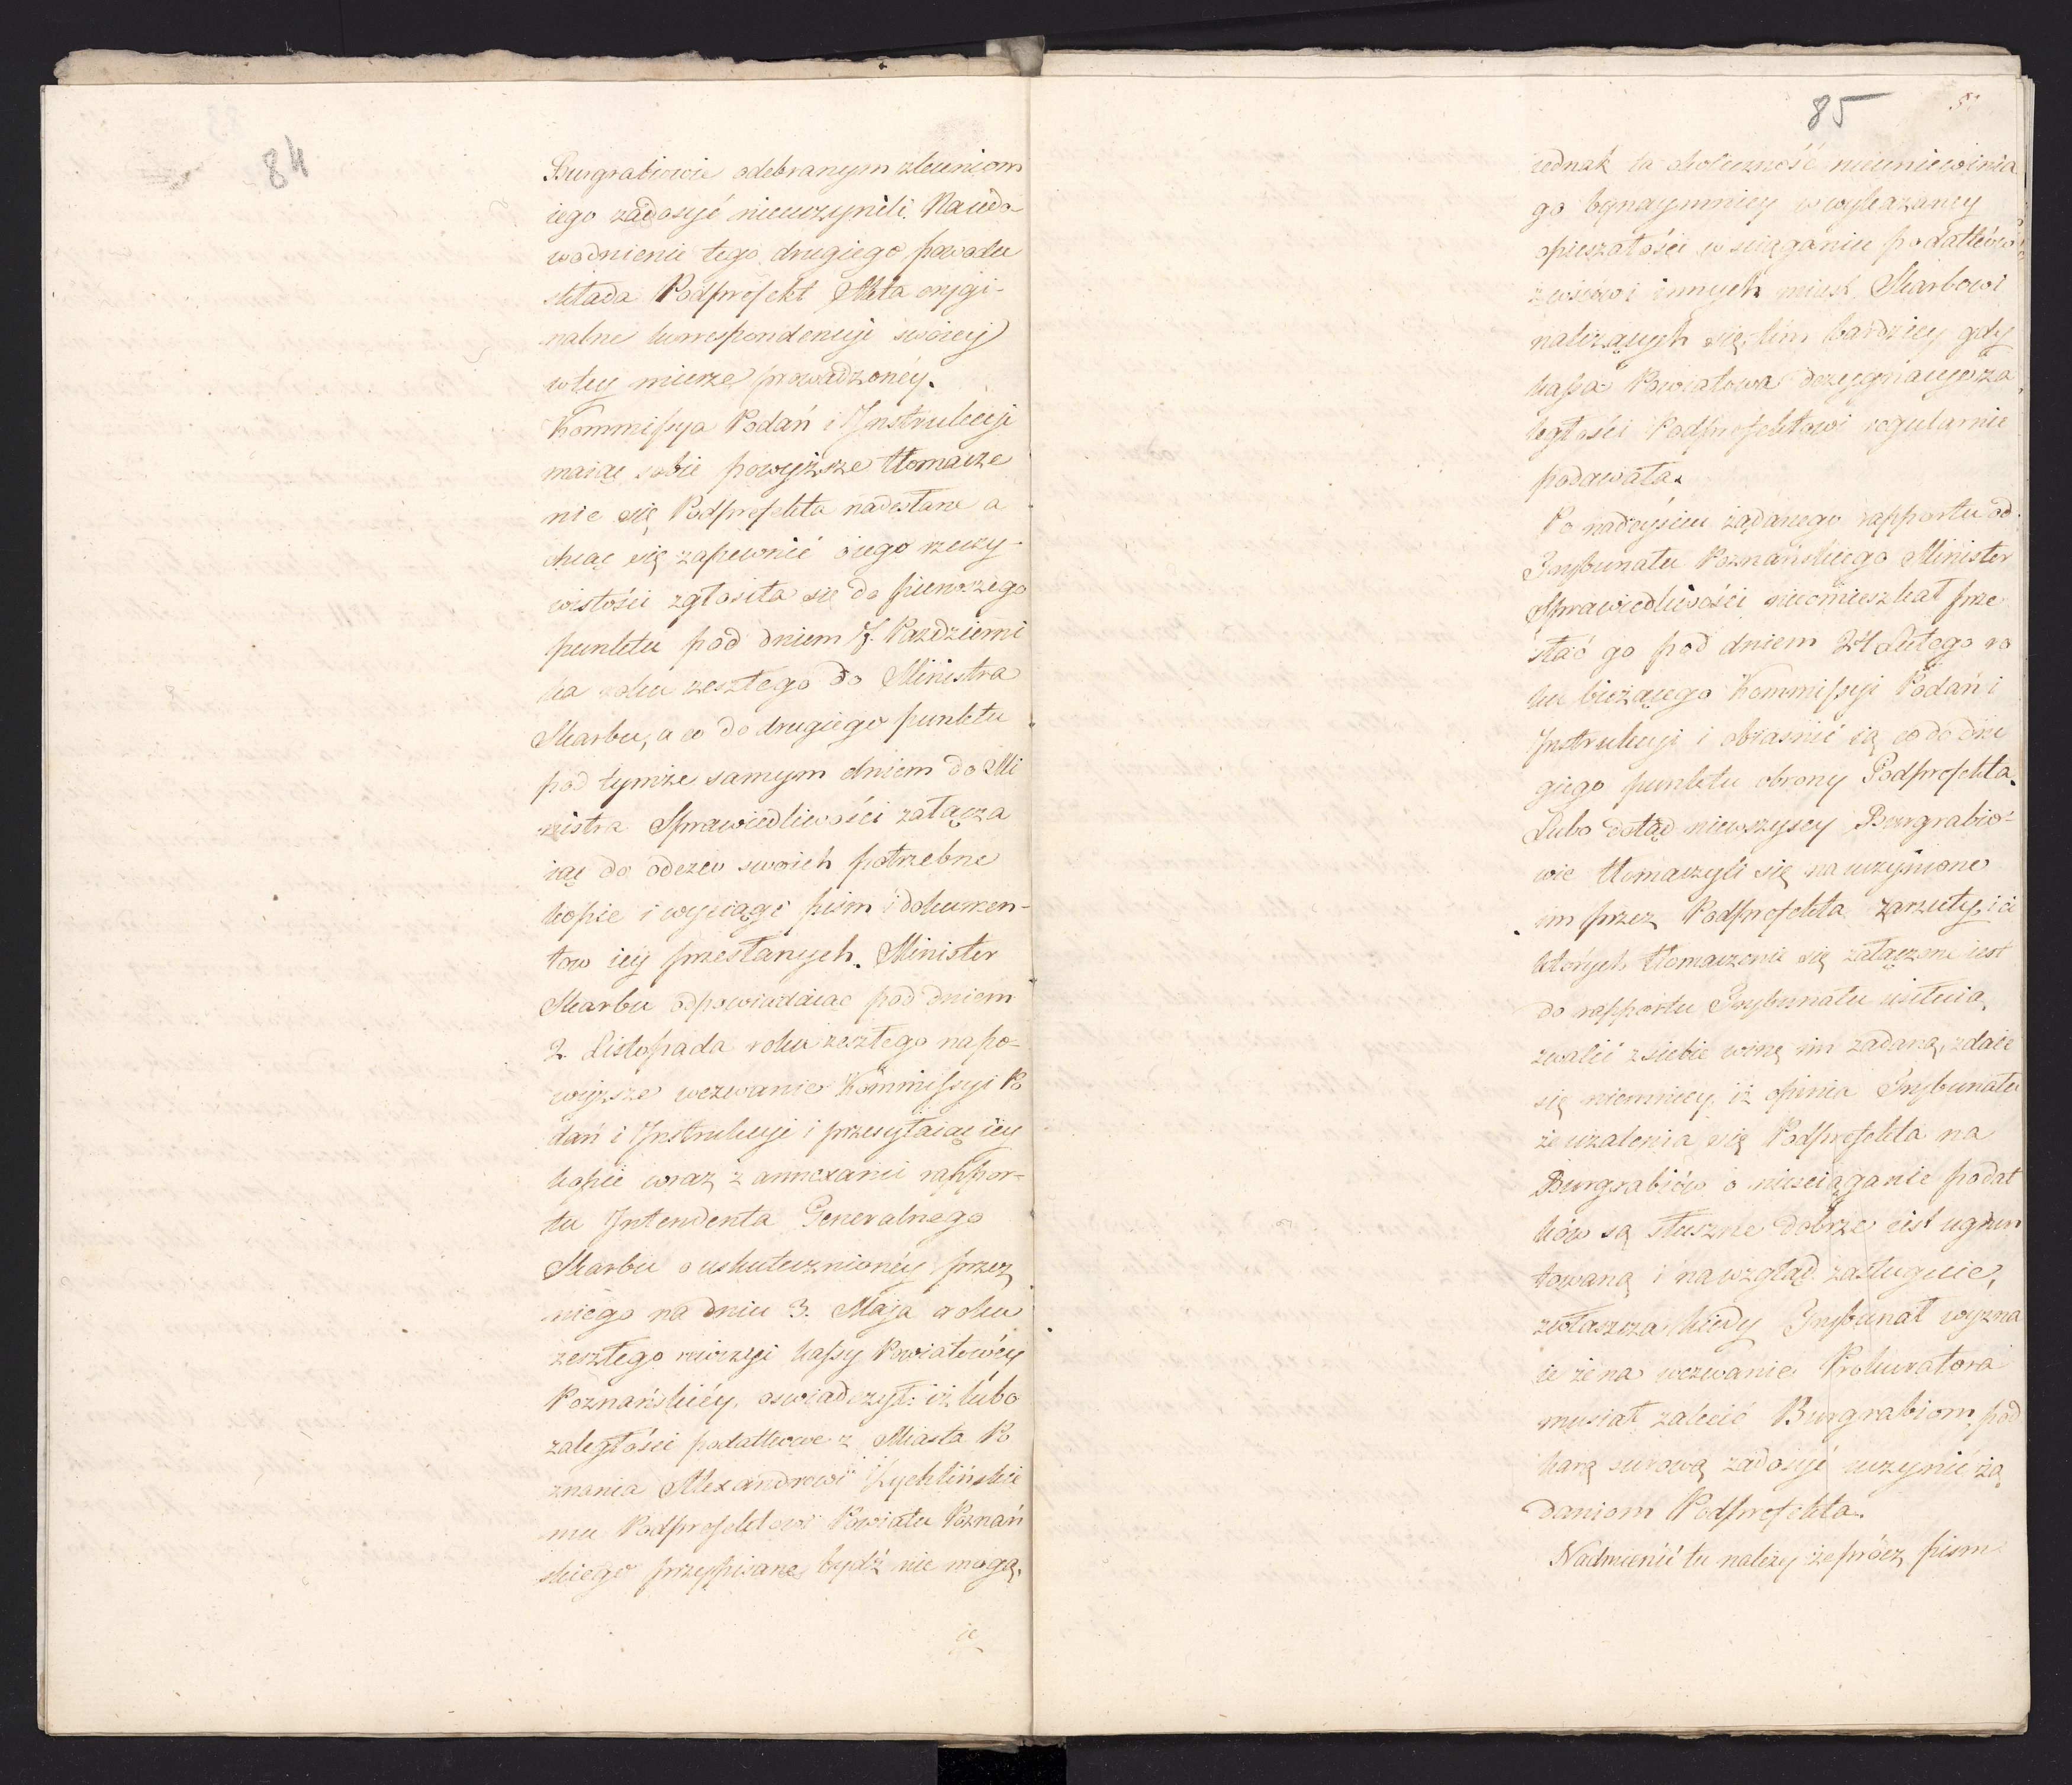 84
Burgrabiowie odebranym zleceniom
iego zadosyć nieuczynili. Na udo-
wodnienie tego drugiego powodu
składa Podprefekt Akta orygi-
nalne korrespondencyi swoiey
wtey mierze prowadzoney.
Kommissya Podań i Instrukcyi
maiąc sobie powyższe tłomacze
nie się Podprefekta nadesłane a
chcąc się zapewnić o iego rzeczy-
wistości zgłosiła się do pierwszego
punktu pod dniem 7. Pazdzierni
ka roku zeszłego do Ministra
Skarbu, a co do drugiego punktu
pod tymże samym dniem do Mi
nistra Sprawiedliwości załącza
iąc do odezw swoich potrzebne
kopie i wyciągi pism i dokumen-
tow iey przesłanych. Minister
Skarbu odpowiadaiąc pod dniem
2 Listopada roku zeszłego na po-
wyższe wezwanie Kommissyi Po
dań i Instrukcyi i przesyłaiąc iey
kopie wraz z annexami rappor-
tu Intendenta Generalnego
Skarbu o uskutecznioney przez
niego na dniu 3. Maja roku
zeszłego rewizyi kassy Powiatowéy
Poznańskiéy, oswiadczył: iż lubo
zaległości podatkowe z Miasta Po
znania Alexandrowi Zychlińskie
mu Podprefektowi Powiatu Poznań
skiego przypisane bydź nie mogą,
ie
85
iednak ta okoliczność nieuniewinia
go bynaymniey w wykazaney
opieszałości w sciąganiu podatków
z wsiow i innych miast Skarbowi
należących się, tém bardziey gdy
kassa Powiatowa dozygnacye za
ległości Podprefektowi regularnie
podawała.
Po nadeyściu żądanego rapportu od
Trybunału Poznańskiego Minister
Sprawiedliwości nieomieszkał prze
słać go pod dniem 24 Lutego ro
ku bieżącego Kommissyi Podań i
Instrukcyi i obiasnić ią co do dru
giego punktu obrony Podprefekta.
Lubo dotąd niewszyscy Burgrabio-
wie tłomaczyli się na uczynione
im przez Podprefekta zarzuty, i ci
których tłomaczenie się załączone iest
do rapportu Trybunału usiłuią
zwalić z siebie winę im zadaną, zdaie
się niemniey iż opinia Trybunału
że użalenia się Podprefekta na
Burgrabiów o niesciąganie podat
ków są słuszne dobrze iest ugrun
towaną i na wzgląd zasługuie,
zwłaszcza kiedy Trybunał wyzna
ie że na wezwanie Prokuratora
musiał zalecić Burgrabiom pod
karą surową zadosyć uczynić żą
daniom Podprefekta.
Nadmienić tu należy że prócz pism